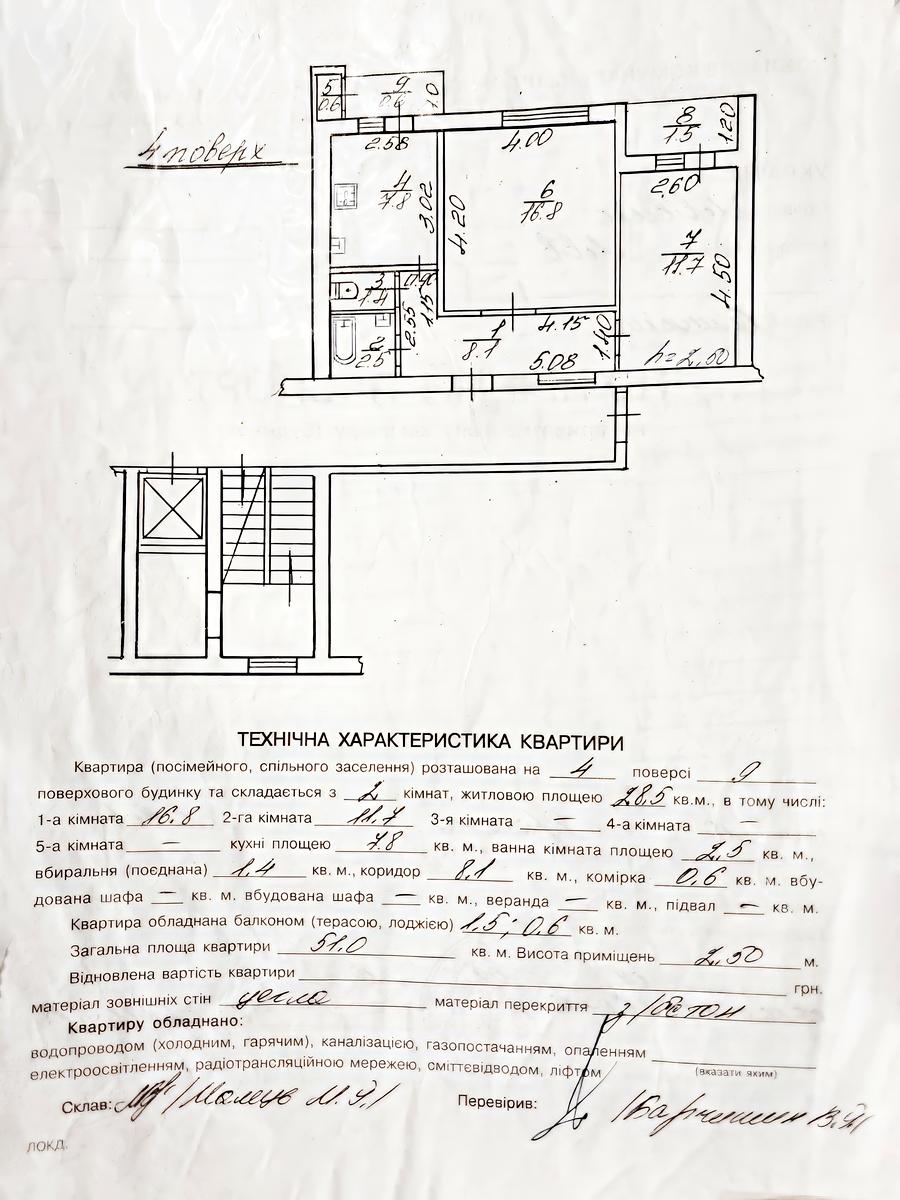 5 9
0.6 0.6 1.0
4 поверх
2.58 4.00
8
1.5 1.20
4
7.8 3.02
4.20
6
16.8
2.60
7
11.7 4.50
3
1.4
1.15
2.55
2
2.5
1
8.1
4.15
1.40
5.08
h=2,50
ТЕХНІЧНА ХАРАКТЕРИСТИКА КВАРТИРИ
Квартира (посімейного, спільного заселення) розташована на 4 поверсі 9
поверхового будинку та складається з 2 кімнат, житловою площею 28,5 кв.м., в тому числі:
1-а кімната 16.8 2-га кімната 11.7 3-я кімната — 4-а кімната —
5-а кімната — кухні площею 7.8 кв. м., ванна кімната площею 2,5 кв. м.,
вбиральня (поєднана) 1.4 кв. м., коридор 8,1 кв. м., комірка 0,6 кв. м. вбу-
дована шафа — кв. м. вбудована шафа — кв. м., веранда — кв. м., підвал — кв. м.
Квартира обладнана балконом (терасою, лоджією) 1,5; 0.6 кв. м.
Загальна площа квартири 51.0 кв. м. Висота приміщень 2,50 м.
Відновлена вартість квартири грн.
матеріал зовнішніх стін цегла матеріал перекриття з/бетон
Квартиру обладнано:
водопроводом (холодним, гарячим), каналізацією, газопостачанням, опаленням
електроосвітленням, радіотрансляційною мережею, сміттєвідводом, ліфтом (вказати яким)
Склав: Перевірив:
ЛОКД.